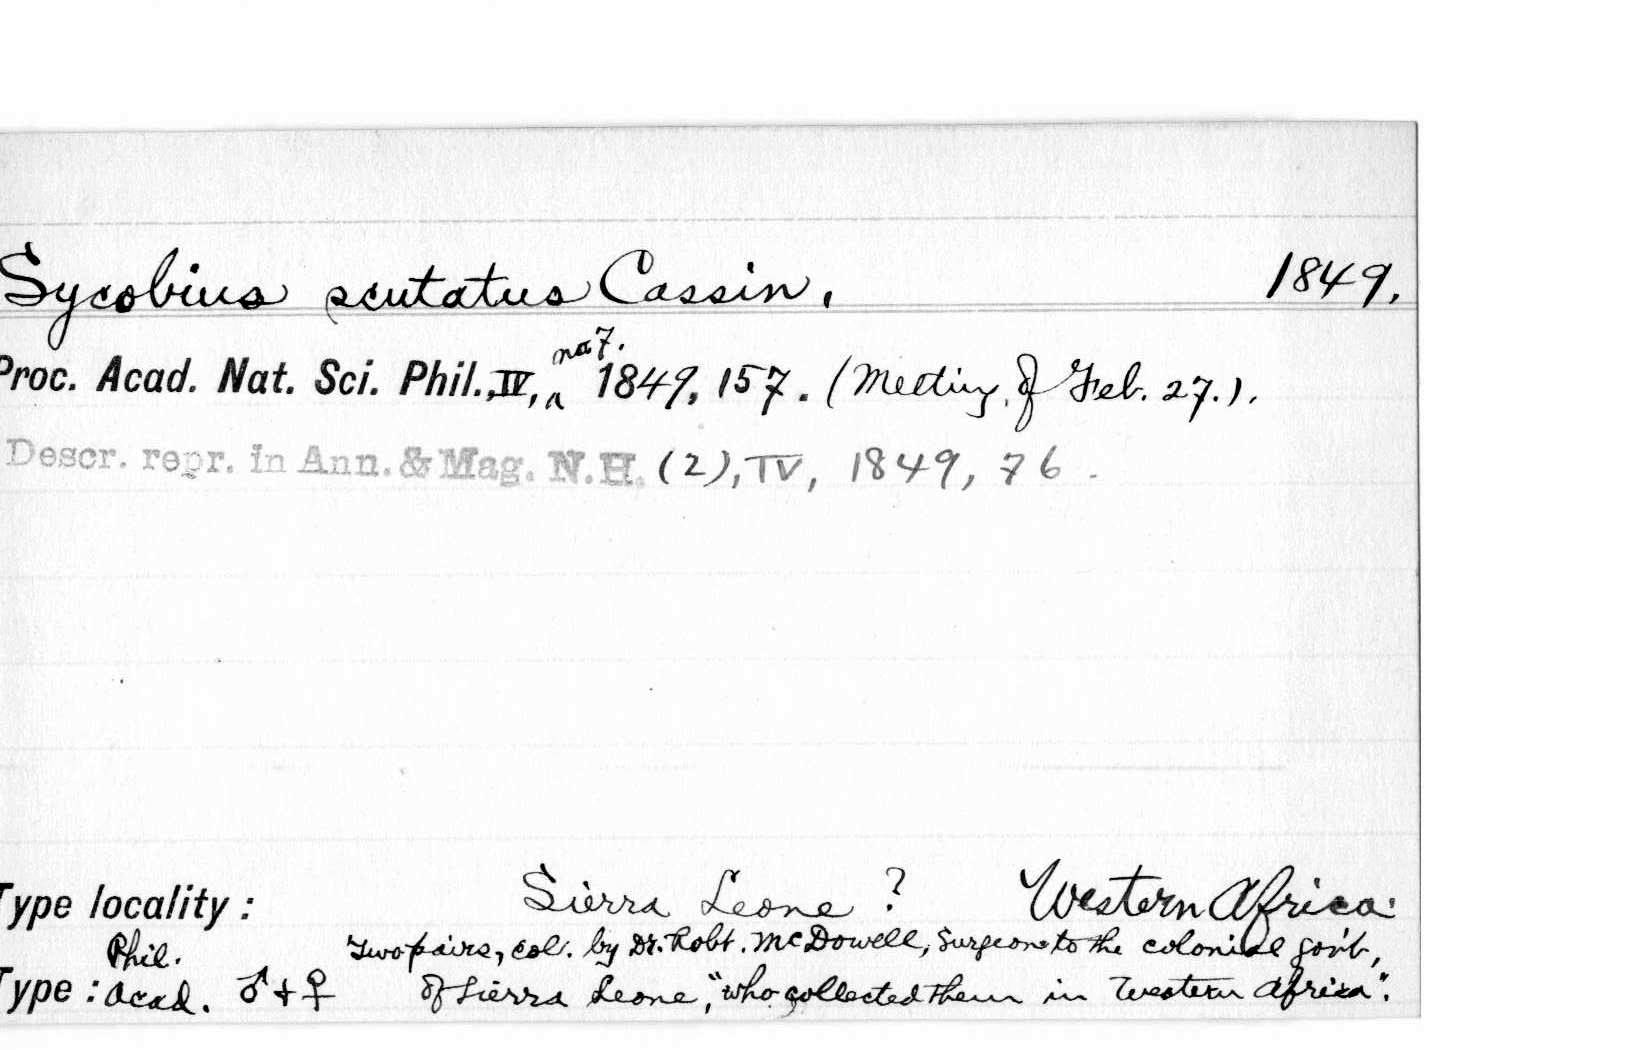 Sycobius scutatus Cassin. 1849.
no 7.
Proc. Acad. Nat. Sci. Phil., IV, ʌ 1849, 157. (Meeting of Feb. 27.).
Descr. repr. in Ann. & Mag. N.H. (2), IV, 1849, 76.
Type locality: Sierra Leone ? Western Africa.
Phil. Two pairs, col. by Dr. Robt. McDowell, Surgeon to the colonial gov't,
Type: Acad. ♂ + ♀ of Sierra Leone, "who collected them in Western Africa".